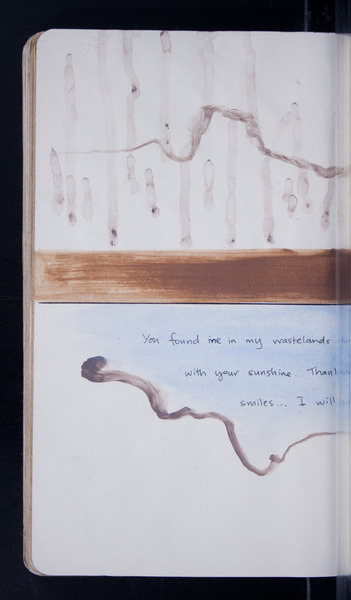 You found me in my wastelands
with your sunshine. Thank
smiles... I will